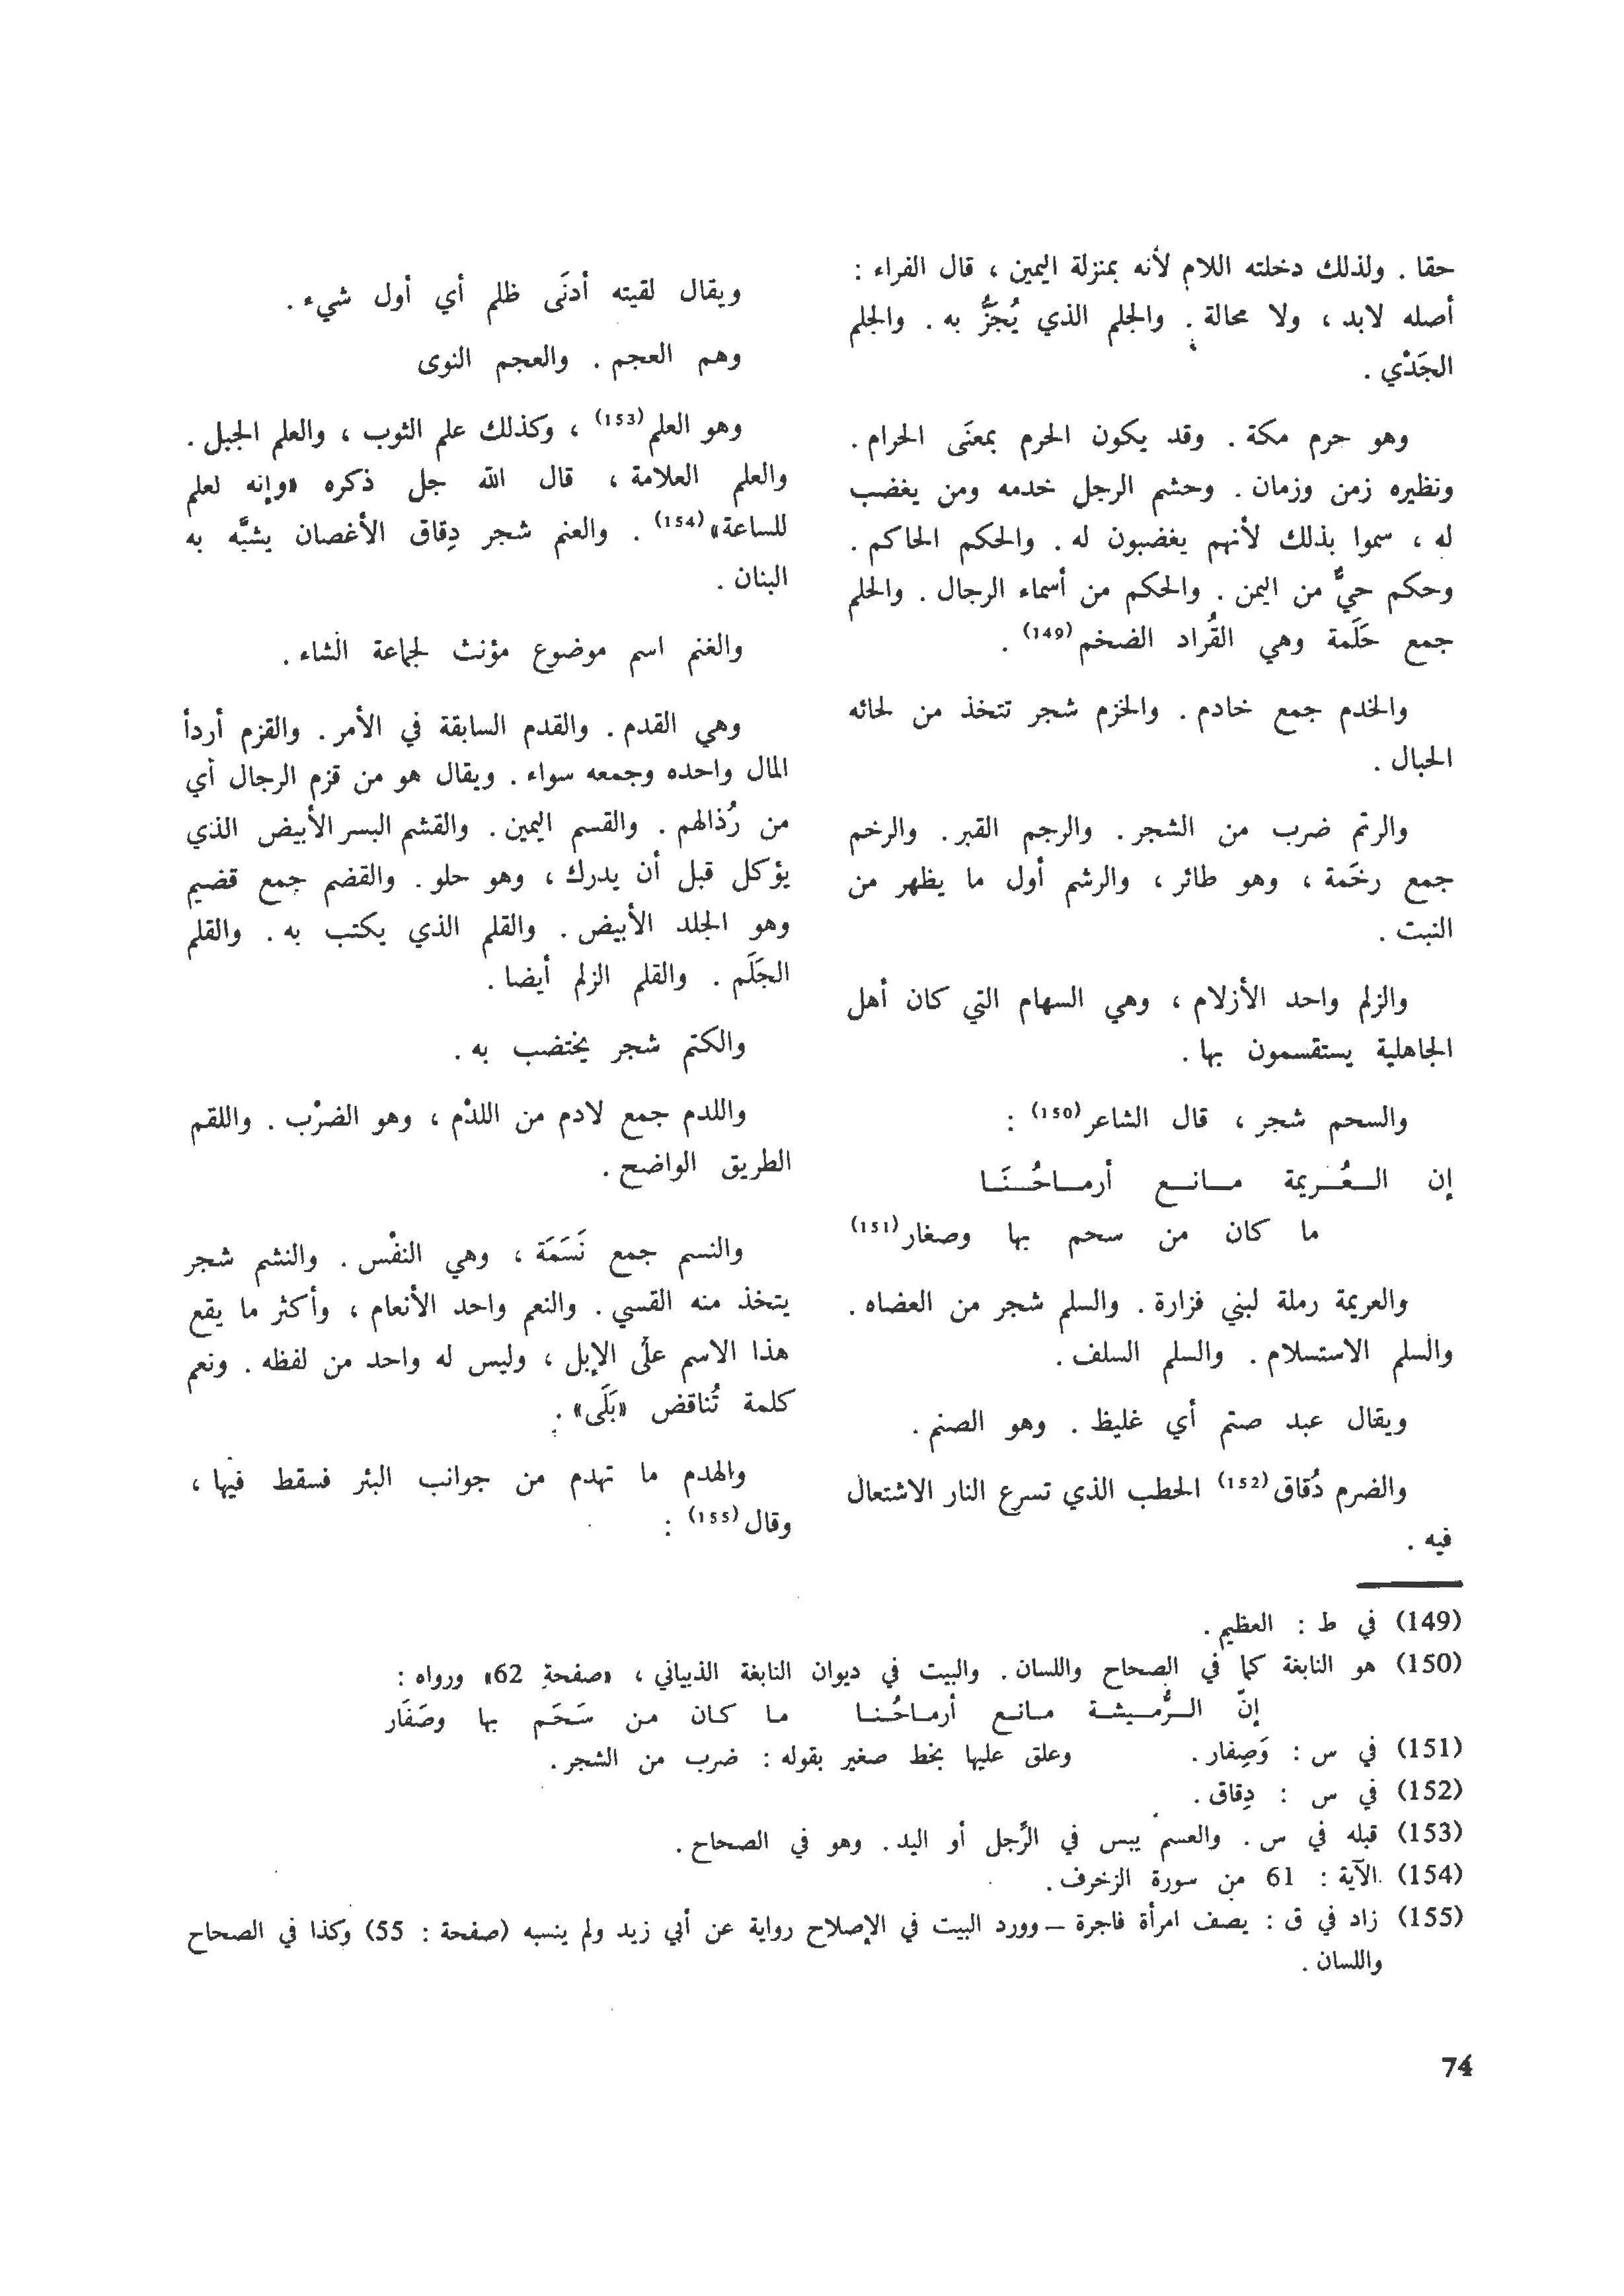 حقا . ولذلك دخلته اللام لأنه بمنزلة اليمين ، قال الفراء :
أصله لابد ، ولا محالة . والجلم الذي يُجَزُّ به . والجلم
الجَدْي .
وهو حرم مكة . وقد يكون الحرم بمعنَى الحرام .
ونظيره زمن وزمان . وحشم الرجل خدمه ومن يغضب
له ، سموا بذلك لأنهم يغضبون له . والحكم الحاكم .
وحكم حيٌّ من اليمن . والحكم من أسماء الرجال . والحلم
جمع حَلَمة وهي القُراد الضخم (149) .
والخدم جمع خادم . والخزم شجر تتخذ من لحائه
الحبال .
والرتم ضرب من الشجر . والرجم القبر . والرخم
جمع رخَمة ، وهو طائر ، والرشم أول ما يظهر من
النبت .
والزلم واحد الأزلام ، وهي السهام التي كان أهل
الجاهلية يستقسمون بها .
والسحم شجر ، قال الشاعر (150) :
إن العُريمة مانع أرماحُنَا
ما كان من سحم بها وصغار (151)
والعريمة رملة لبني فزارة . والسلم شجر من العضاه .
والسلم الاستسلام . والسلم السلف .
ويقال عبد صتم أي غليظ . وهو الصنم .
والضرم دُقاق (152) الحطب الذي تسرع النار الاشتعال
فيه .
ويقال لقيته أدنَى ظلم أي أول شيء .
وهم العجم . والعجم النوى
وهو العلم (153) ، وكذلك علم الثوب ، والعلم الجبل .
والعلم العلامة ، قال الله جل ذكره «وإنه لعلم
للساعة» (154) . والعنم شجر دِقاق الأغصان يشبَّه به
البنان .
والغنم اسم موضوع مؤنث لجماعة الشاء .
وهي القدم . والقدم السابقة في الأمر . والقزم أردأ
المال واحده وجمعه سواء . ويقال هو من قزم الرجال أي
من رُذالهم . والقسم اليمين . والقشم البسر الأبيض الذي
يؤكل قبل أن يدرك ، وهو حلو . والقضم جمع قضيم
وهو الجلد الأبيض . والقلم الذي يكتب به . والقلم
الجَلَم . والقلم الزلم أيضا .
والكتم شجر يختضب به .
واللدم جمع لادم من اللدْم ، وهو الضرْب . واللقم
الطريق الواضح .
والنسم جمع نَسَمَة ، وهي النفْس . والنشم شجر
يتخذ منه القسي . والنعم واحد الأنعام ، وأكثر ما يقع
هذا الاسم على الإبل ، وليس له واحد من لفظه . ونعم
كلمة تُناقض «بَلَى» .
والهدم ما تهدم من جوانب البئر فسقط فيها ،
وقال (155) :
(149) في ط : العظيم .
(150) هو النابغة كما في الصحاح واللسان . والبيت في ديوان النابغة الذبياني ، «صفحة 62» ورواه :
إنّ الرُّميثة مانع أرماحُنا ما كان من سَحَم بها وصَفَار
(151) في س : وَصِفار . وعلق عليها بخط صغير بقوله : ضرب من الشجر .
(152) في س : دِقاق .
(153) قبله في س . والعسم يبس في الرِّجل أو اليد . وهو في الصحاح .
(154) الآية : 61 من سورة الزخرف .
(155) زاد في ق : يصف امرأة فاجرة – وورد البيت في الإصلاح رواية عن أبي زيد ولم ينسبه (صفحة : 55) وكذا في الصحاح
واللسان .
74